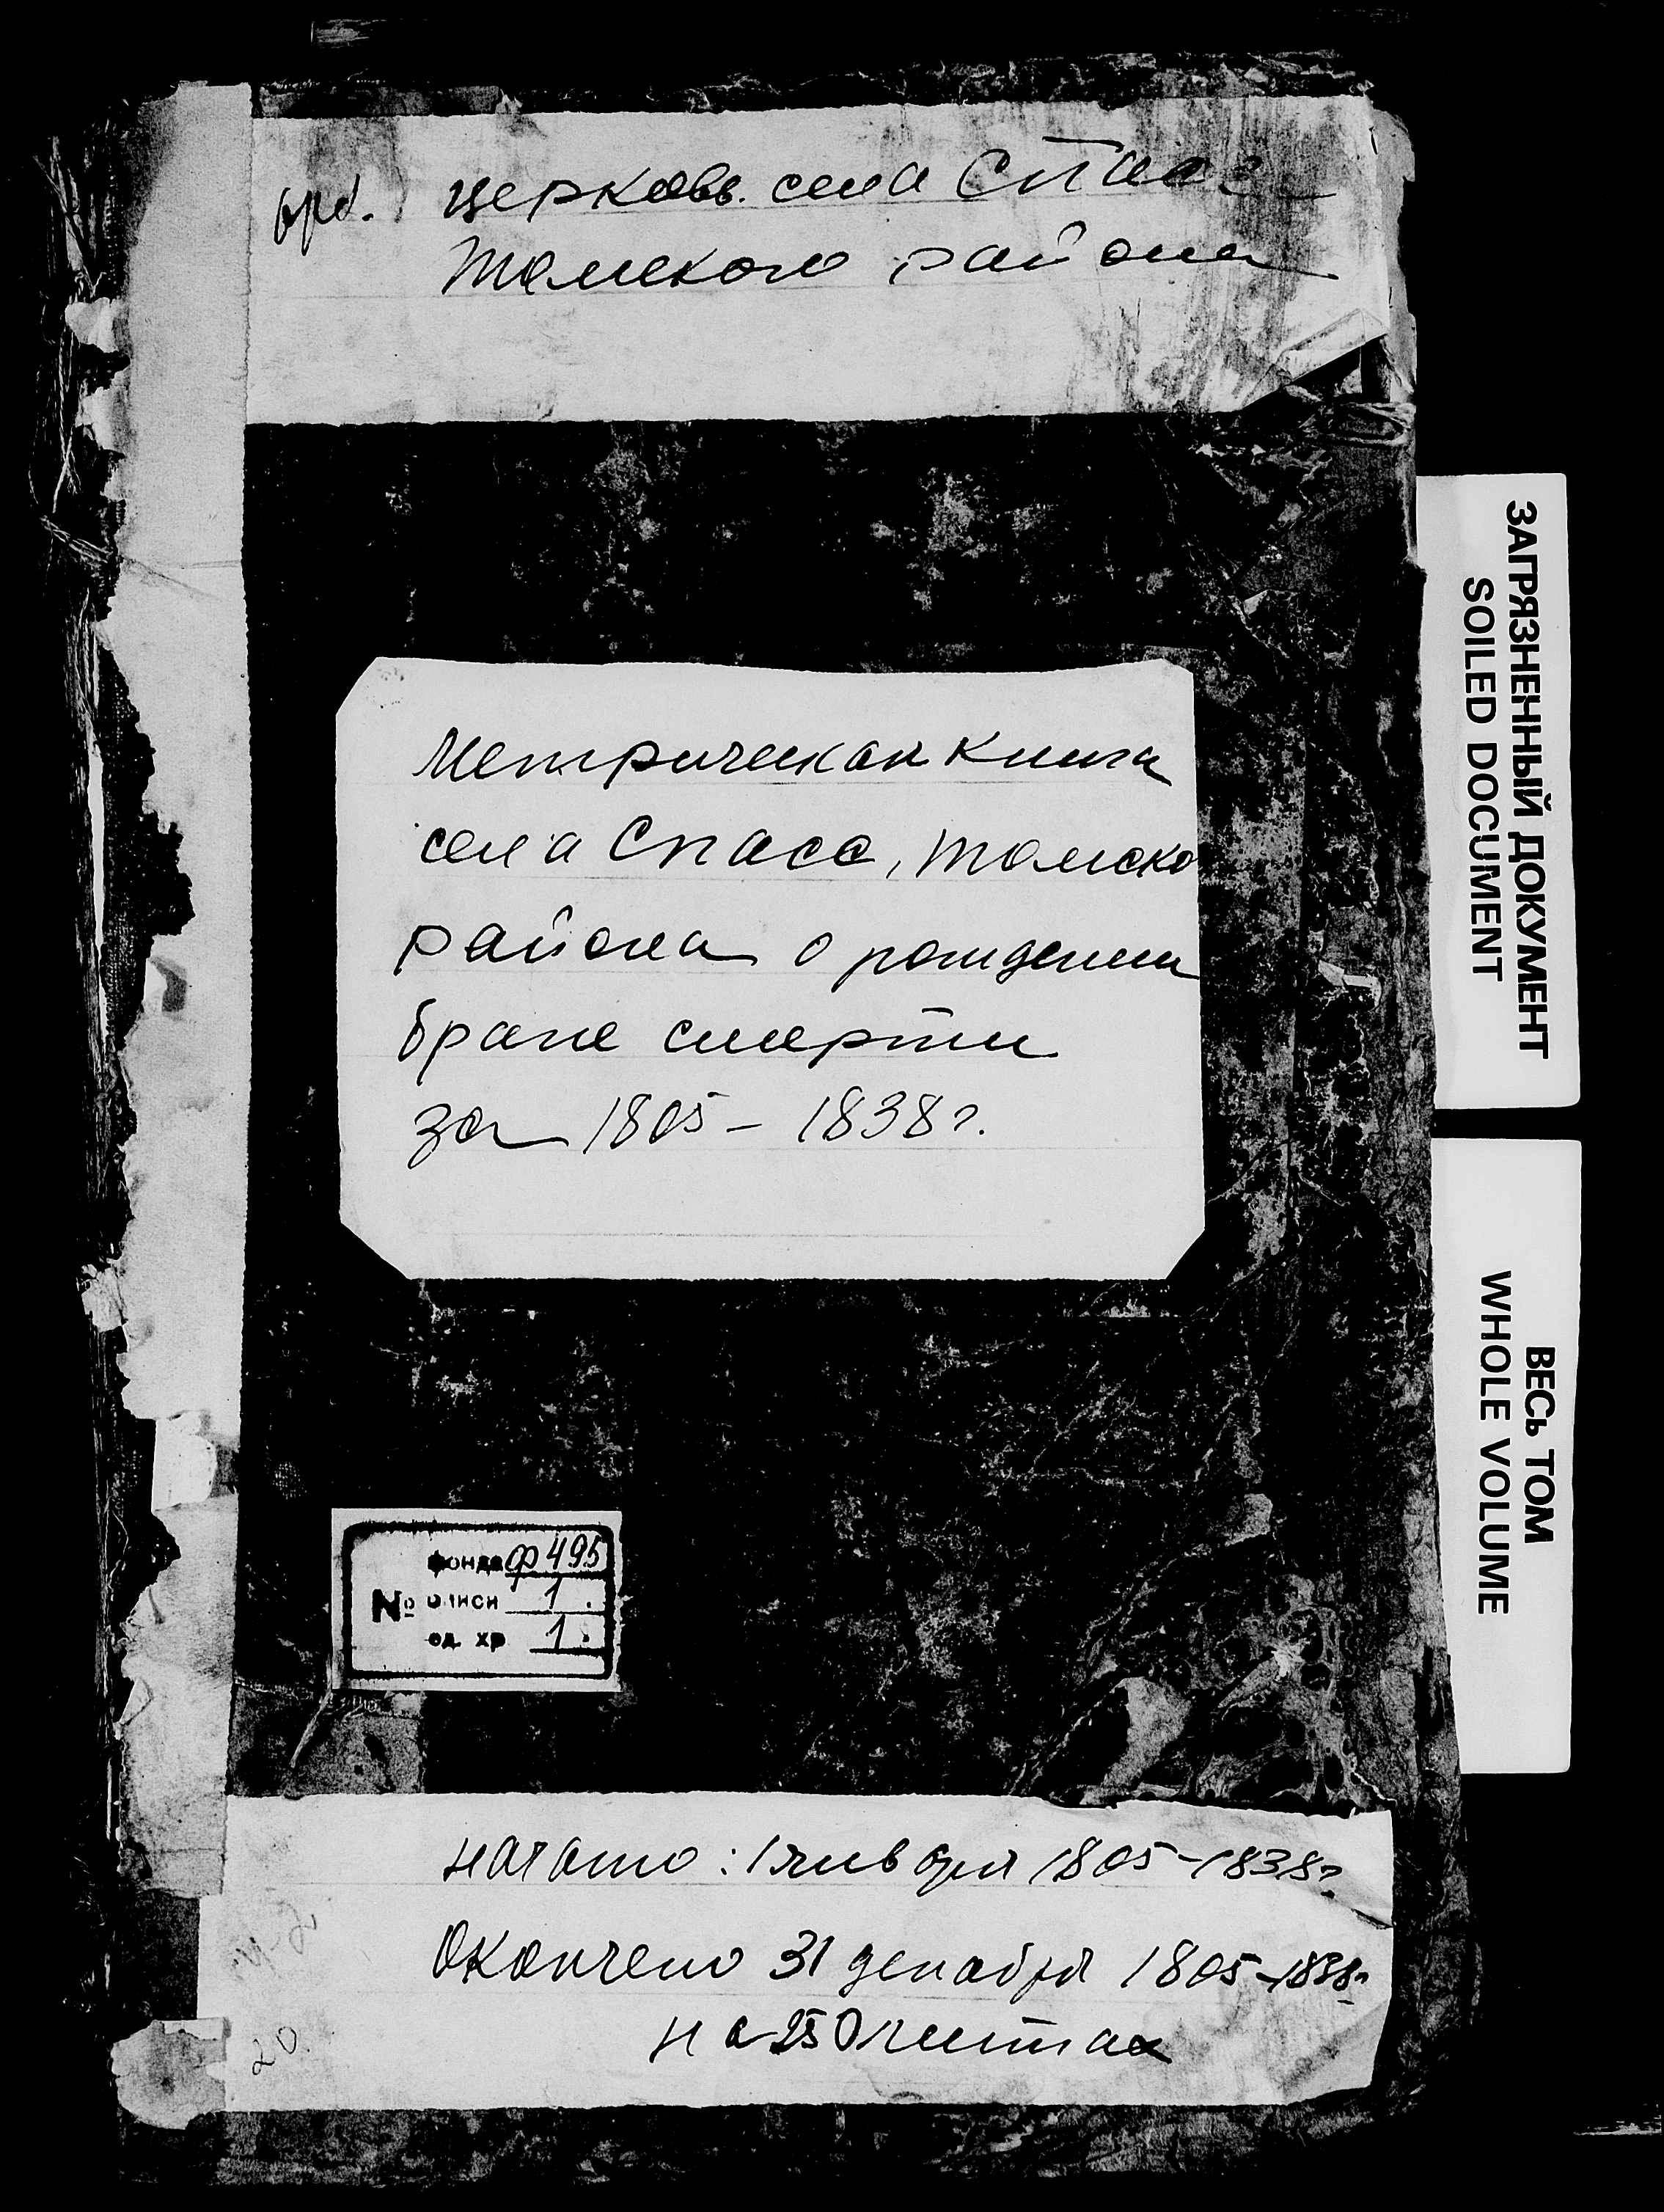 церковь села Спасс
Томского района
Метрическая книга
села Спасс, Томско
района о рождении
браке смерти
за 1805 - 1838 г.
фонда ф 495
№ описи 1.
ед. хр 1.
начато: 1 января 1805-1838 г.
Окончено 31 декабря 1805-1838 г.
на 250 листах
20.
ЗАГРЯЗНЕННЫЙ ДОКУМЕНТ
SOILED DOCUMENT
ВЕСЬ ТОМ
WHOLE VOLUME